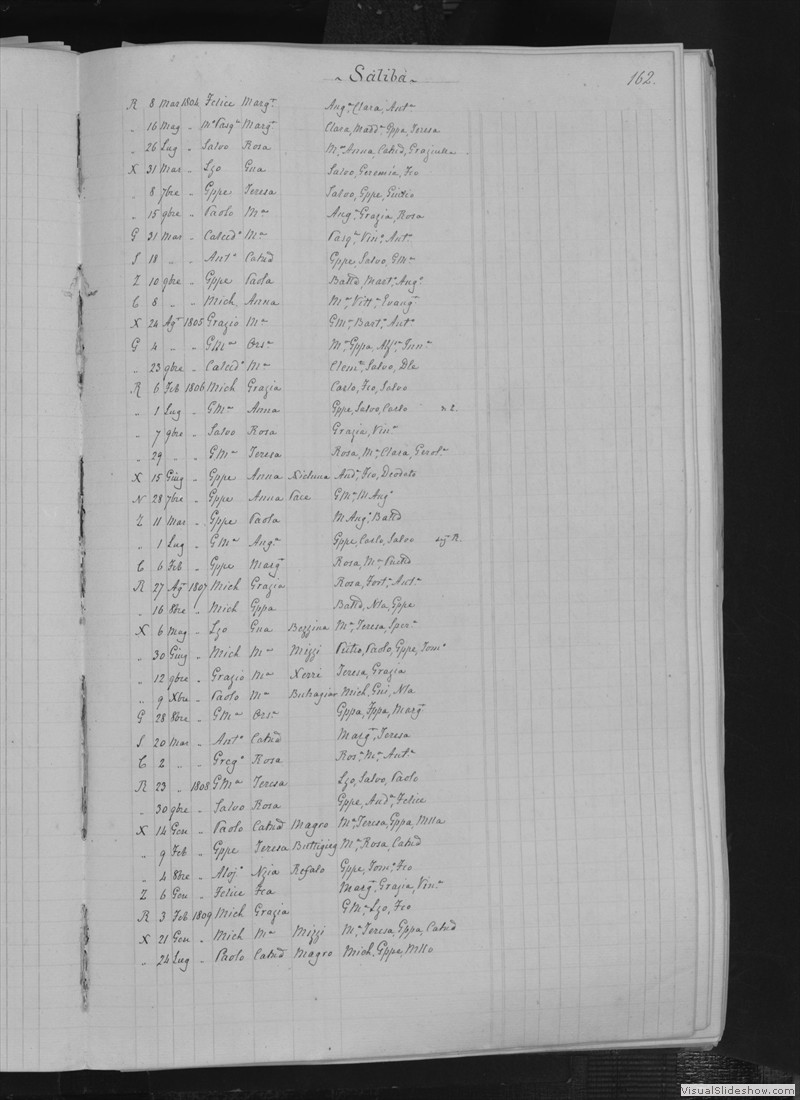 ~ Sálibá ~ 162.
R 8 Mar 1804 Felice Marg.ta Ang.a Clara, Ant.a
„ 16 Mag „ M.o Pasq.e Marg.ta Clara, Madd.a Gppa, Teresa
„ 26 Lug „ Salvo Rosa M.a Anna, Catnd, Graziulla
X 31 Mar „ Lzo Gna Salvo, Geremia, Fco
„ 8 7bre „ Gppe Teresa Salvo, Gppe,
„ 15 9bre „ Paolo M.a Ang.a Grazia, Rosa
G 31 Mar „ Calced.o M.a Pasq.e Vin.o Ant.o
S 18 „ „ Ant.o Catnd Gppe, Salvo, GM.a
Z 10 9bre „ Gppe Paola Battd, Mart.o Ang.o
C 8 „ „ Mich Anna M.a Vitt.a Evang.ta
X 24 Ag.o 1805 Grazio M.a GM.a Bart.o Ant.o
G 4 „ „ GM.a Ors.a M.a Gppa, Alf.o Inn.o
„ 23 9bre „ Calced.o M.a Clem.e Salvo,
R 6 Feb 1806 Mich Grazia Carlo, Fco, Salvo
„ 1 Lug „ GM.a Anna Gppe, Salvo, Carlo 2.
„ 7 9bre „ Salvo Rosa Grazia, Vin.a
„ 29 „ „ GM.a Teresa Rosa, M.a Clara, Gerol.a
X 15 Giug „ Gppe Anna Xicluna And.a Fco, Deodato
N 28 7bre „ Gppe Anna Pace GM.a M Ang.o
Z 11 Mar „ Gppe Paola M Ang.o Battd
„ 1 Lug „ GM.a Ang.a Gppe, Carlo, Salvo R.
C 6 Feb „ Gppe Marg.ta Rosa, M.a
R 27 Ag.o 1807 Mich Grazia Rosa, Fort.a Ant.a
„ 16 8bre „ Mich Gppa Battd, Nla, Gppe
X 6 Mag „ Lzo Gna Bezzina M.a Teresa, Sper.a
„ 30 Giug „ Mich M.a Mizzi Pietro, Paolo, Gppe, Tom.o
„ 12 9bre „ Grazio M.a Xerri Teresa, Grazia
„ 9 Xbre „ Paolo M.a Buhagiar Mich, Gni, Nla
G 28 8bre „ GM.a Ors.a Gppa, Fppa, Marg.ta
S 20 Mar „ Ant.o Catnd Marg.ta Teresa
C 2 „ „ Greg.o Rosa Ros.a M.a Ant.a
R 23 „ 1808 GM.a Teresa Lzo, Salvo, Paolo
„ 30 9bre „ Salvo Rosa Gppe, And.a Felice
X 14 Gen „ Paolo Catnd Magro M.a Teresa, Gppa, Mlla
„ 9 Feb „ Gppe Teresa Buttigieg M.a Rosa, Catnd
„ 4 8bre „ Aloj.o Nzia Refalo Gppe, Tom.o Fco
Z 6 Gen „ Felice Fca Marg.ta Grazia, Vin.a
R 3 Feb 1809 Mich Grazia GM.a Lzo, Fco
X 21 Gen „ Mich M.a Mizzi M.a Teresa, Gppa, Catnd
„ 24 Lug „ Paolo Catnd Magro Mich, Gppe, Mllo
VisualSlideshow.com